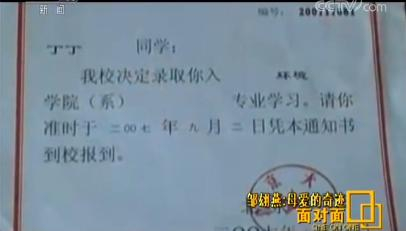 新闻
CCTV.com
编号:
丁丁 同学:
我校决定录取你入 环境
学院(系) 专业学习。请你
准时于 二〇〇七 年 九 月 二 日凭本通知书
到校报到。
邹翃燕:母爱的奇迹
面对面
ONE ON ONE